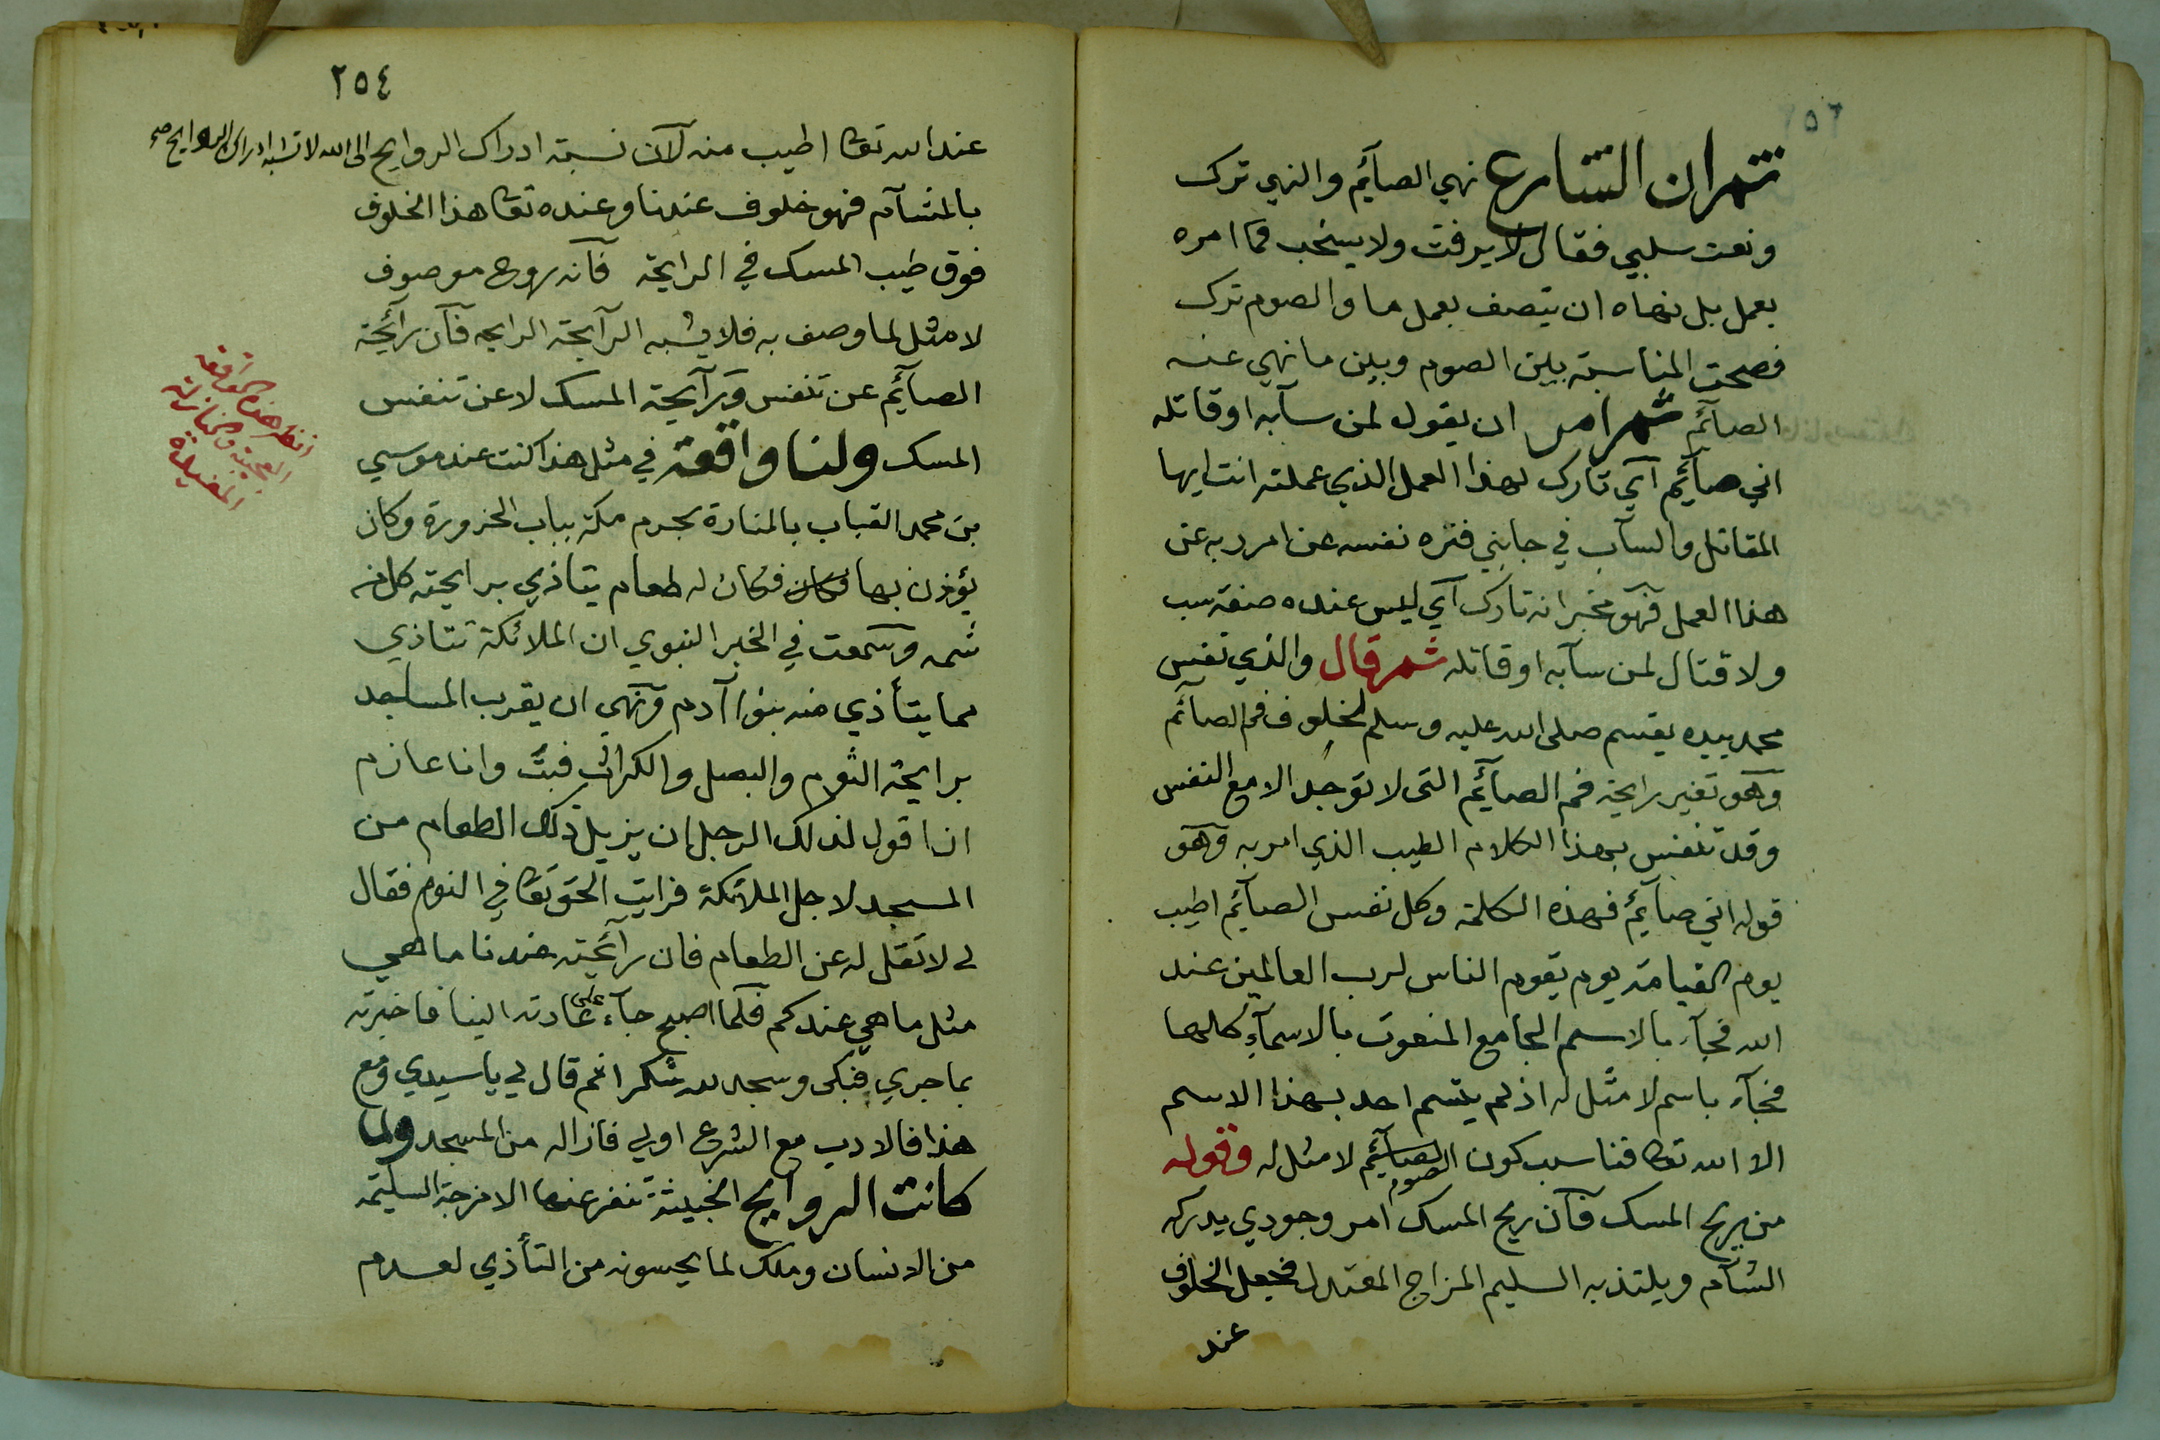 ثم ان الشارع نهي الصآئم والنهي ترك
ونعت سلبي فقال لا يرفث ولا يسخب فما امره
بعمل بل نهاه ان يتصف بعمل ما والصوم ترك
فصحت المناسبة بين الصوم وبين ما نهي عنه
الصآئم ثم امر ان يقول لمن سآبه اوقاتله
اني صآئم آي تارك لهذا العمل الذي عملته انت ايها
المقاتل والسآب في جانبي فنزه نفسه عن امر ربه عن
هذا العمل فهو مخبر انه تارك آي ليس عنده صفة سب
ولا قتال لمن سآبه اوقاتله ثم قال والذي نفس
محمد بيده يقسم صلى الله عليه وسلم لخلوف فم الصآئم
وهو تغير رايحة فم الصآئم التى لا توجد الا مع النفس
وقد تنفس بهذا الكلام الطيب الذي امر به وهو
قوله اني صآئم فهذه الكلمة وكل نفس الصآئم اطيب
يوم القيامة يوم يقوم الناس لرب العالمين عند
الله فجآء بالاسم الجامع المنعوت بالاسمآء كلها
فجآء باسم لا مثل له اذ لم يتسم احد بهذا الاسم
الا الله تعا فناسب كون الصآئم الصوم لا مثل له وقوله
من ريح المسك فآن ريح المسك امر وجودي يدركه
الشآم ويلتذ به السليم المزاج المعتدل فجعل الخلوف
عند
٢٥٤
عند الله تعا اطيب منه لآن نسبة ادراك الروايح الى الله لا تشبه ادراك الروايح صح
بالمشآم فهو خلوف عندنا وعنده تعا هذا الخلوف
فوق طيب المسك في الرايحة فآنه روح موصوف
لا مثل لما وصف به فلا يشبه الرآيحة الرايحه فآن رآئحة
الصآئم عن تنفس ورآيحة المسك لا عن تنفس
المسك ولنا واقعة في مثل هذا كنت عند موسي
بن محمد القباب بالمنارة بحرم مكة بباب الحزورة وكان
يؤذن بها فكان له طعام يتاذي برايحته كل من
شمه وسمعت في الخبر النبوي ان الملائكة تتاذي
مما يتأذي منه بنوا آدم ونهي ان يقرب المساجد
برايحة الثوم والبصل والكراث فبت وانا عازم
ان اقول لذلك الرجل ان يزيل ذلك الطعام من
المسجد لاجل الملآئكة فرايت الحق تعا في النوم فقال
لي لا تقل له عن الطعام فان رآئحته عندنا ما هي
مثل ما هي عندكم فلما اصبح جآء على عادته الينا فاخبرته
بما جري فبكى وسجد لله شكرا ثم قال لي يا سيدي ومع
هذا فالادب مع الشرع اولي فازاله من المسجد ولما
كانت الروايح الخبيثة تنفر عنها الامزجة السليمة
من الانسان وملك لما يحسونه من التأذي لعدم
انظر هذه الواقعة
العجيبة